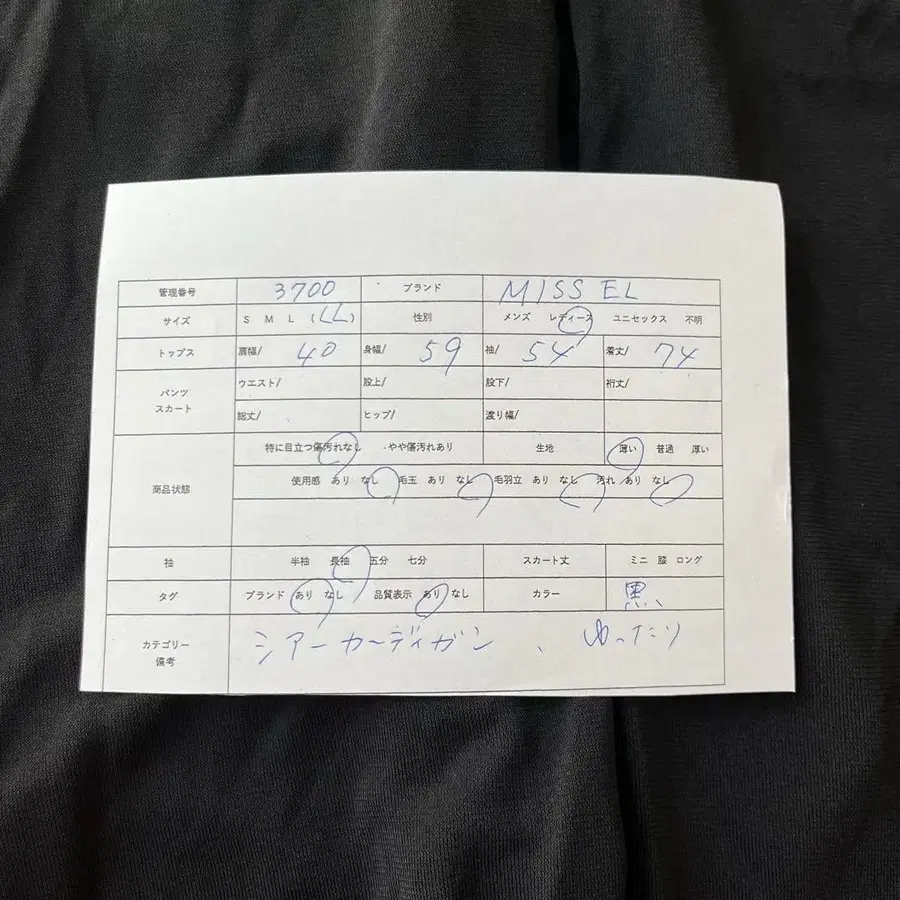 管理番号 3700 ブランド MISS EL
サイズ S M L (LL) 性別 メンズ レディース ユニセックス 不明
トップス 肩幅/ 40 身幅/ 59 袖/ 54 着丈/ 74
パンツ スカート ウエスト/ 股上/ 股下/ 裄丈/
総丈/ ヒップ/ 渡り幅/
商品状態 特に目立つ傷汚れなし ・やや傷汚れあり 生地 薄い 普通 厚い
使用感 あり なし 毛玉 あり なし 毛羽立 あり なし 汚れ あり なし
袖 半袖 長袖 五分 七分 スカート丈 ミニ 膝 ロング
タグ ブランド あり なし 品質表示 あり なし カラー 黒
カテゴリー 備考 シアーカーディガン 、 ゆったり